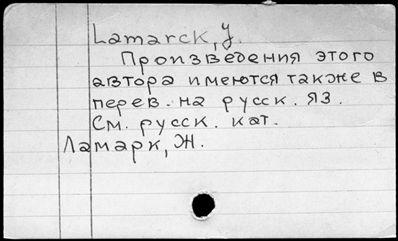 Lamarck, J.
Произведения этого
автора имеются также в
перев. на русск. яз.
См. русск. кат.
Ламарк, Ж.